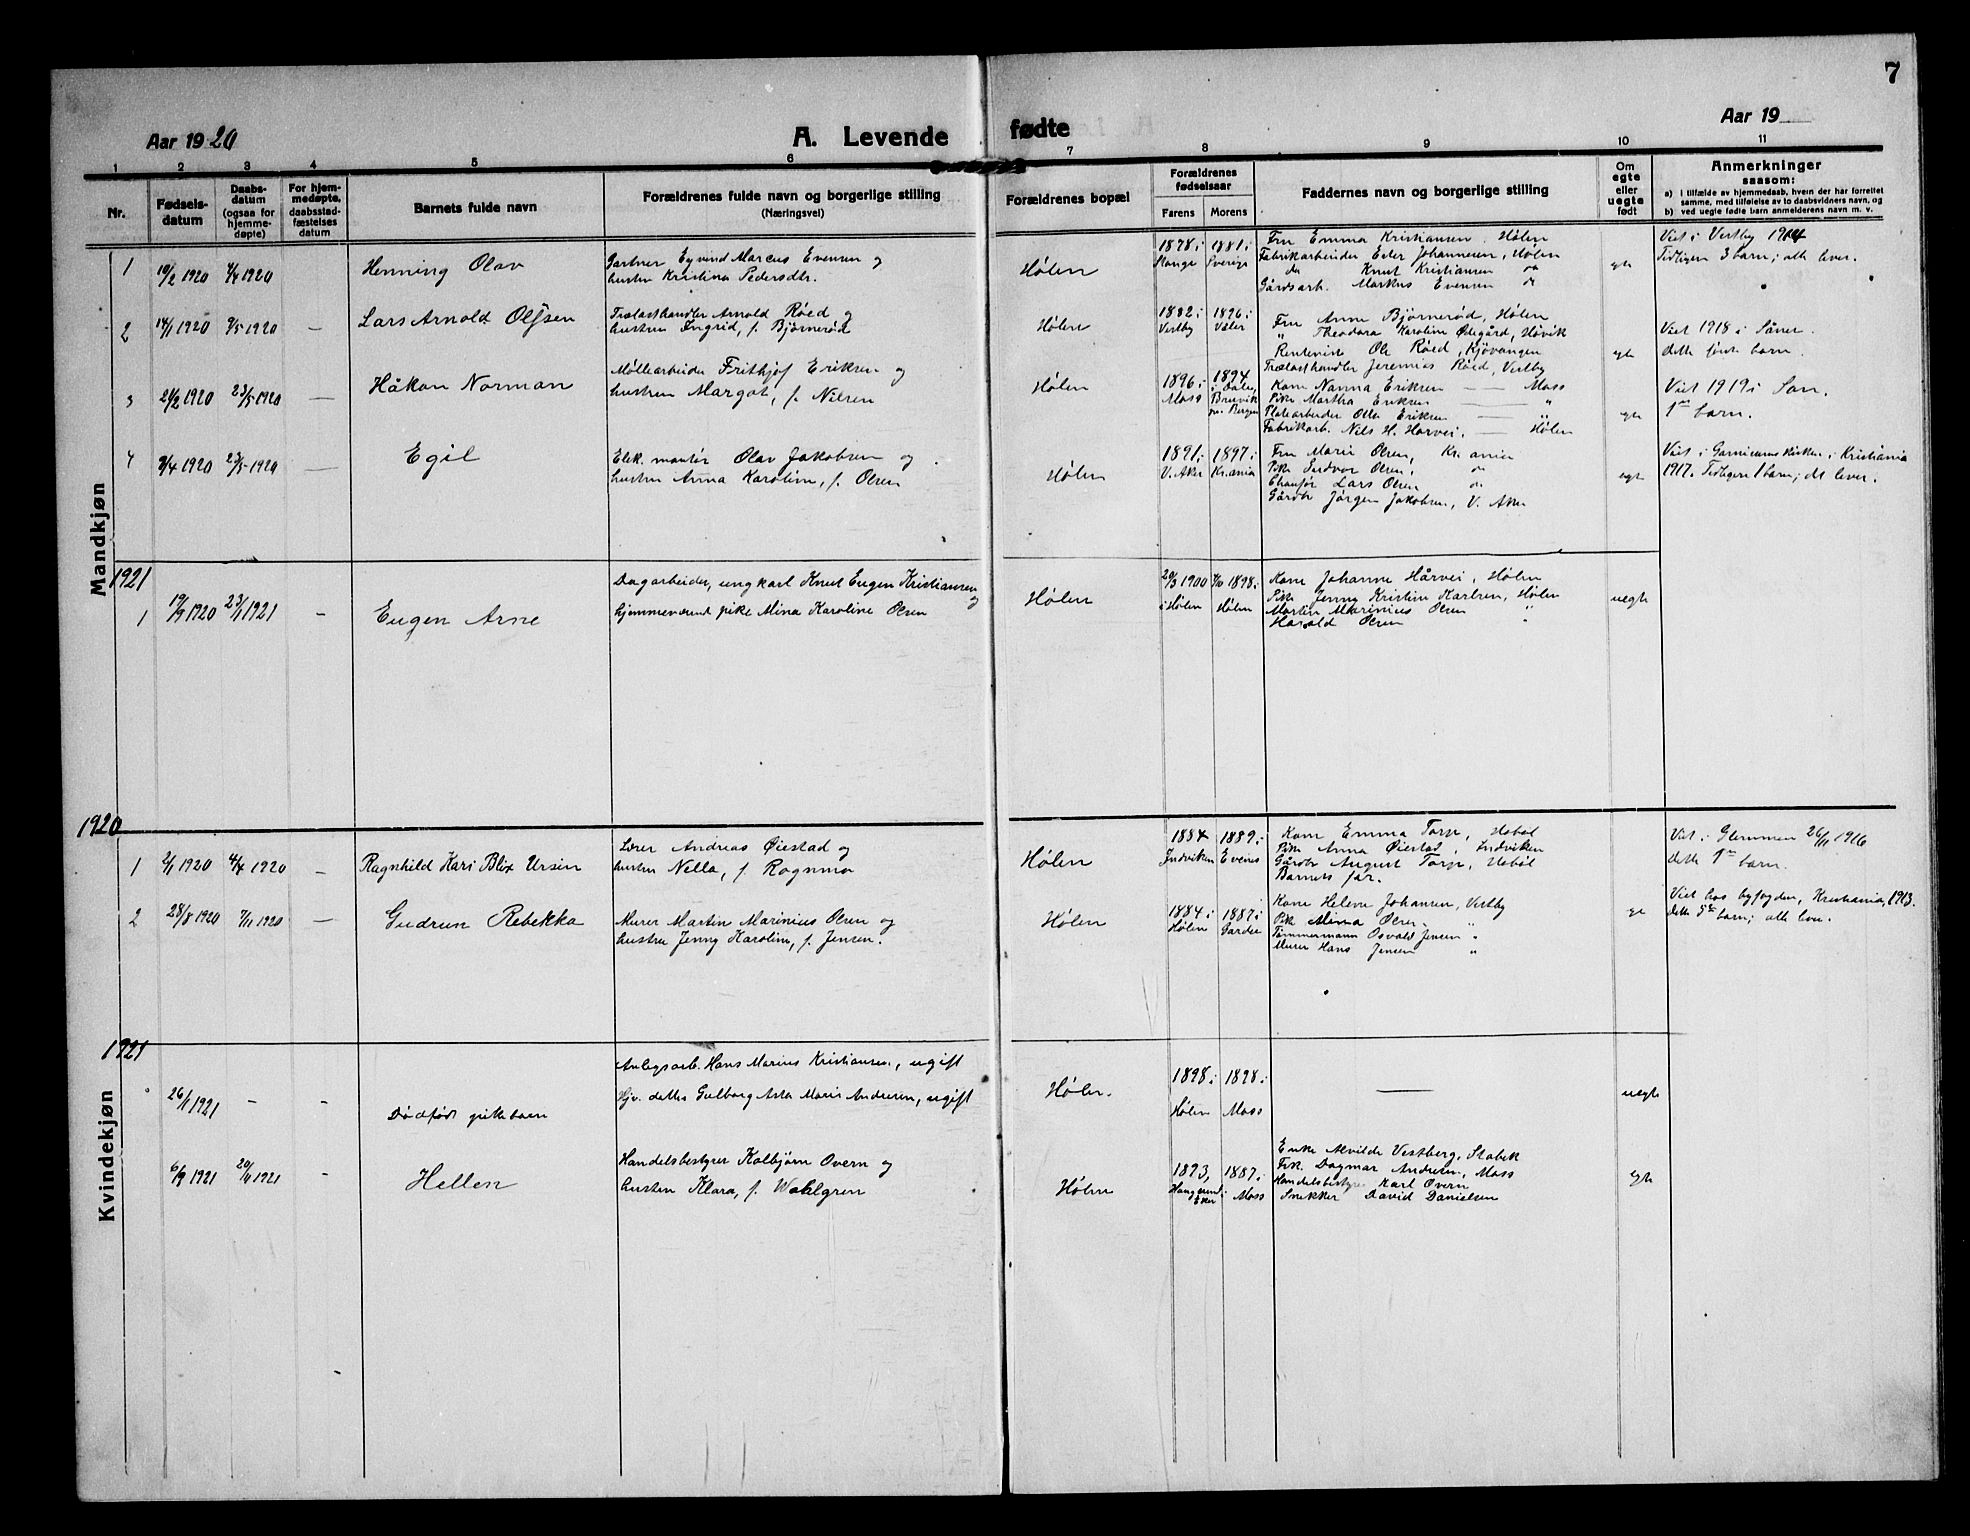 7
Aar 1920
A. Levende fødte
Aar 19
1 2 3 4 5 6 7 8 9 10 11
Nr.
Fødsels-
datum
Daabs-
datum
(ogsaa for
hjemme-
døpte)
For hjem-
medøpte,
daabsstad-
fæstelses
datum
Barnets fulde navn
Forældrenes fulde navn og borgerlige stilling
(Næringsvei)
Forældrenes bopæl
Forældrenes
fødselsaar
Farens Morens
Faddernes navn og borgerlige stilling
Om
ægte
eller
uegte
født
Anmerkninger
saasom:
a) i tilfælde av hjemmedaab, hvem der har forrettet
samme, med tilføielse av to daabsvidners navn, og
b) ved uegte fødte barn anmelderens navn m. v.
Mandkjøn
1 10/2 1920 4/4 1920 Henning Olav
Gartner Eyvind Marcus Evensen og
hustru Kristina Pedersdtr.
Hølen
1878 i 1881 i
Stange Sverige
Fru Emma Kristiansen, Hølen
Fabrikarbeider Edler Johannesen, Hølen
do Knut Kristiansen do
Gårdsarb. Markus Evensen do
egte
Viet i Vestby 1914
Tidligere 3 barn; alle lever.
2 14/1 1920 9/5 1920 — Lars Arnold Olfsen
Trælasthandler Arnold Røed og
hustru Ingrid, f. Bjørnerød
Hølen
1882 i 1896 i
Vestby Våler
Fru Anne Bjørnerød, Hølen
" Theodora Karoline Ødegård, Høvik
Rentenist Ole Røed, Kjøvangen
Trælasthandler Jeremias Røed, Vestby
egte
Viet 1918 i Såner.
dette første barn.
3 21/2 1920 23/5 1920 — Håkon Norman
Møllearbeider Frithjof Eriksen og
hustru Margot, f. Nilsen
Hølen
1896 i 1894
Moss Bruvik Bergen
Kone Nanna Eriksen — Moss
Pike Martha Eriksen — "
Platearbeider Olle Eriksen — "
Fabrikarb. Nils H. Harvei. — Hølen
egte
Viet 1919 i Son.
1ste barn.
4 9/4 1920 23/5 1920 — Egil
Elek. montør Olav Jakobsen og
hustru Anna Karoline, f. Olsen
Hølen
1891 i 1897 i
V. Aker Kr.ania
Fru Marie Olsen, Kr.ania
Pike Sudvor Olsen, do
Chauför Lars Olsen do
Gårdbr Jørgen Jakobsen, V. Aker
egte
Viet i Garnisonskirken, Kristiania
1917. Tidligere 1 barn; det lever.
1921
1 19/9 1920 23/1 1921 — Eugen Arne
Dagarbeider, ungkarl Knut Eugen Kristiansen og
hjemmeværende pike Mina Karoline Olsen
Hølen
20/3 1900 7/10 1898 i
i Hølen Hølen
Kone Johanne Hårvei, Hølen
Pike Jenny Kristine Karlsen, Hølen
Martin Marinius Olsen "
Harald Olsen "
uegte
1920
Kvindekjøn
1 2/1 1920 4/4 1920 — Ragnhild Kari Blix Ursin
Lærer Andreas Øiestad og
hustru Nella, f. Rognmo
Hølen
1884 1889 i
Indviken Evenes
Kone Emma Torp, Hobøl
Pike Anna Øiestad, Indviken
Gårdbr August Torp, Hobøl
Barnets far.
Viet i Glemmen 26/11 1916
dette 1ste barn.
2 28/8 1920 7/11 1920 — Gudrun Rebekka
Murer Martin Marinius Olsen og
hustru Jenny Karoline, f. Jensen.
Hølen
1884 i 1887 i
Hølen Garder
Kone Helene Johansen, Vestby
Pike Mina Olsen "
Tømmermann Osvald Jensen "
Murer Hans Jensen "
Viet hos byfogden, Kristiania, 1913.
Dette 5te barn; alle lever.
1921
26/1 1921 - - Dødfødt pikebarn
Anlegsarb. Hans Marius Kristiansen, ugift
Hjv. datter Gulborg Asta Marie Andersen, ugift
Hølen.
1898 i 1898 i
Hølen Moss
—
uegte
6/9 1921 20/11 1921 — Hellen
Handelsbestyrer Kolbjørn Overn og
hustru Klara, f. Wahlgren
Hølen
1893, 1887 i
Moss
Enke Alvilde Vestberg, Stabek
Frk. Dagmar Andersen, Moss
Handelsbestyrer Karl Overn
Snekker David Danielsen
egte